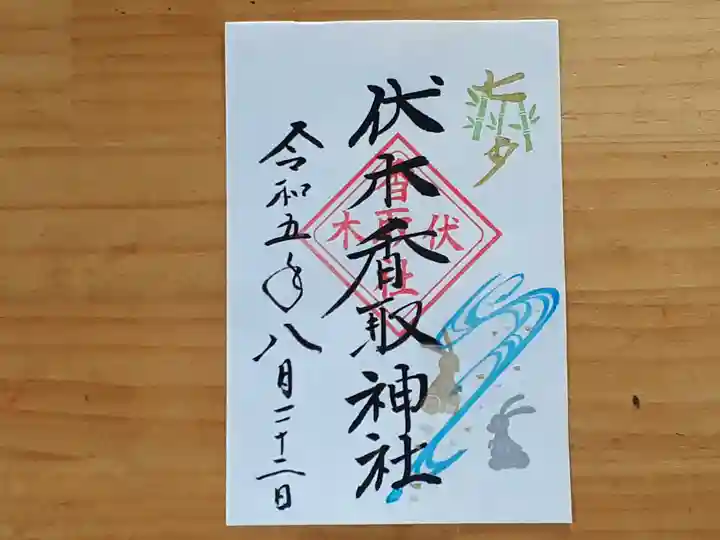 七夕
伏木香取神社
香取社
伏木
令和五年八月二十二日